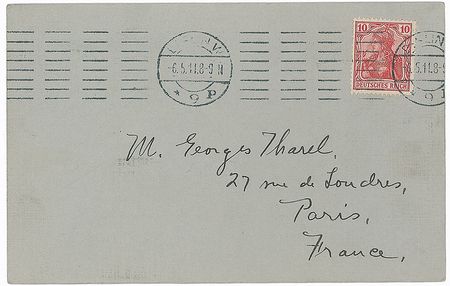 6.5.11.8-9 N
* 9 P
10 10
DEUTSCHES REICH
.5.11.8-9
M. Georges Tharel,
27 rue de Londres,
Paris,
France,